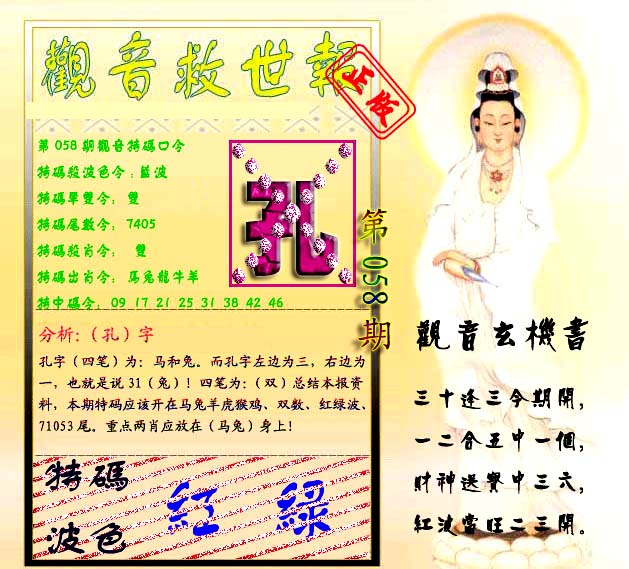 觀音救世報
正版
第058期觀音特碼口令
特碼殺波色令：藍波
特碼單雙令： 雙
特碼尾數令： 7405
特碼殺肖令： 雙
特碼出肖令： 馬兔龍牛羊
特中碼令： 09 17 21 25 31 38 42 46
孔
第058期
分析:（孔）字
孔字（四笔）为：马和兔。而孔字左边为三，右边为
一，也就是说31（兔）！四笔为：（双）总结本报资
料，本期特码应该开在马兔羊虎猴鸡、双数、红绿波、
71053尾。重点两肖应放在（马兔）身上！
特碼
波色
紅 綠
觀音玄機書
三十逢三今期開，
一二合五中一個，
財神送寶中三六，
紅波當旺二三開。